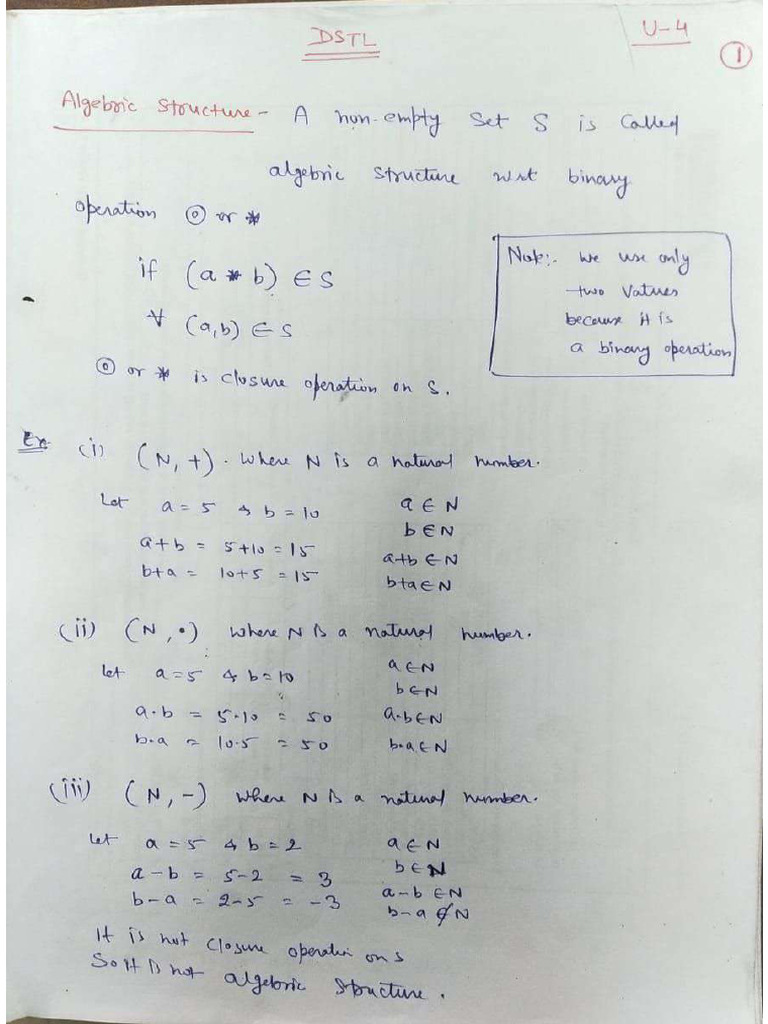 DSTL
U-4
1
Algebric Structure - A non-empty Set S is Called
algebric structure wrt binary
operation ⊙ or *
if (a * b) ∈ S
∀ (a,b) ∈ S
⊙ or * is closure operation on S.
Note:- we use only
two Values
because it is
a binary operation
Ex (i) (N, +). where N is a natural number.
Let a = 5 & b = 10 a ∈ N
b ∈ N
a+b = 5+10 = 15 a+b ∈ N
b+a = 10+5 = 15 b+a ∈ N
(ii) (N, •) where N is a natural number.
let a = 5 & b = 10 a ∈ N
b ∈ N
a·b = 5·10 = 50 a·b ∈ N
b·a = 10·5 = 50 b·a ∈ N
(iii) (N, -) where N is a natural number.
let a = 5 & b = 2 a ∈ N
b ∈ N
a - b = 5-2 = 3 a-b ∈ N
b - a = 2-5 = -3 b-a ∉ N
It is not closure operation on S
So it is not algebric structure.